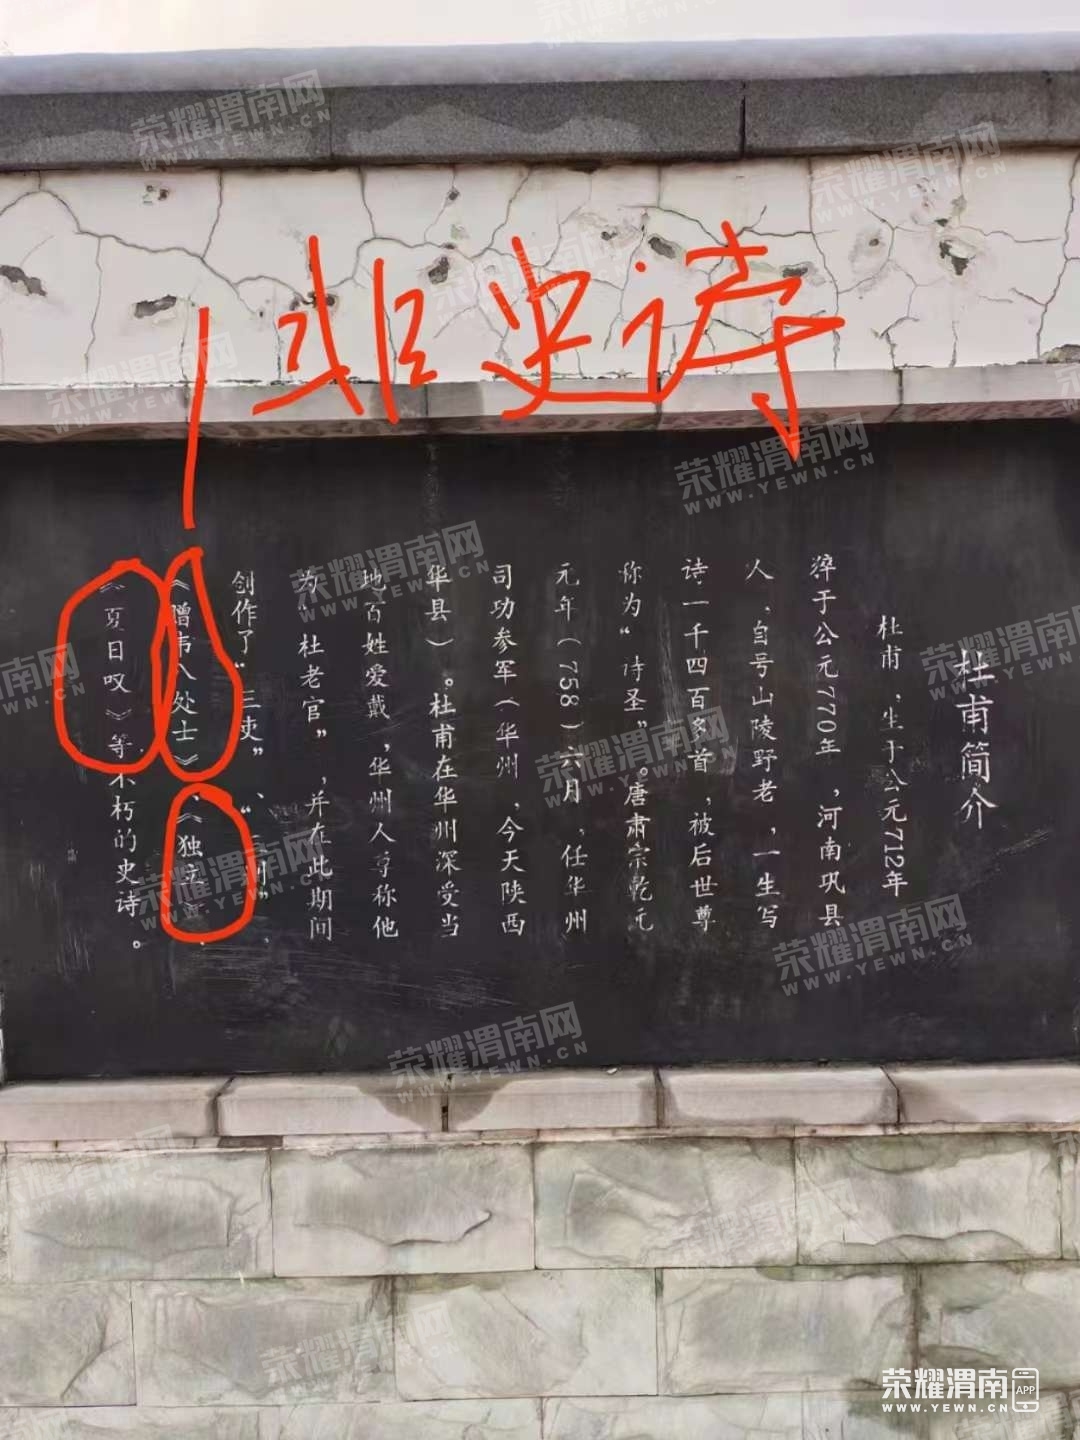 非史诗
杜甫简介
杜甫，生于公元712年
猝于公元770年，河南巩县
人、自号山陵野老，一生写
诗一千四百多首，被后世尊
称为“诗圣”。唐肃宗乾元
元年（758）六月，任华州
司功参军（华州，今天陕西
华县）。杜甫在华州深受当
地百姓爱戴，华州人尊称他
为“杜老官”，并在此期间
创作了“三吏”、“三别”、
《赠韦八处士》、《独立》、
《夏日叹》等不朽的史诗。
荣耀渭南网
WWW.YEWN.CN
荣耀渭南
APP
WWW.YEWN.CN